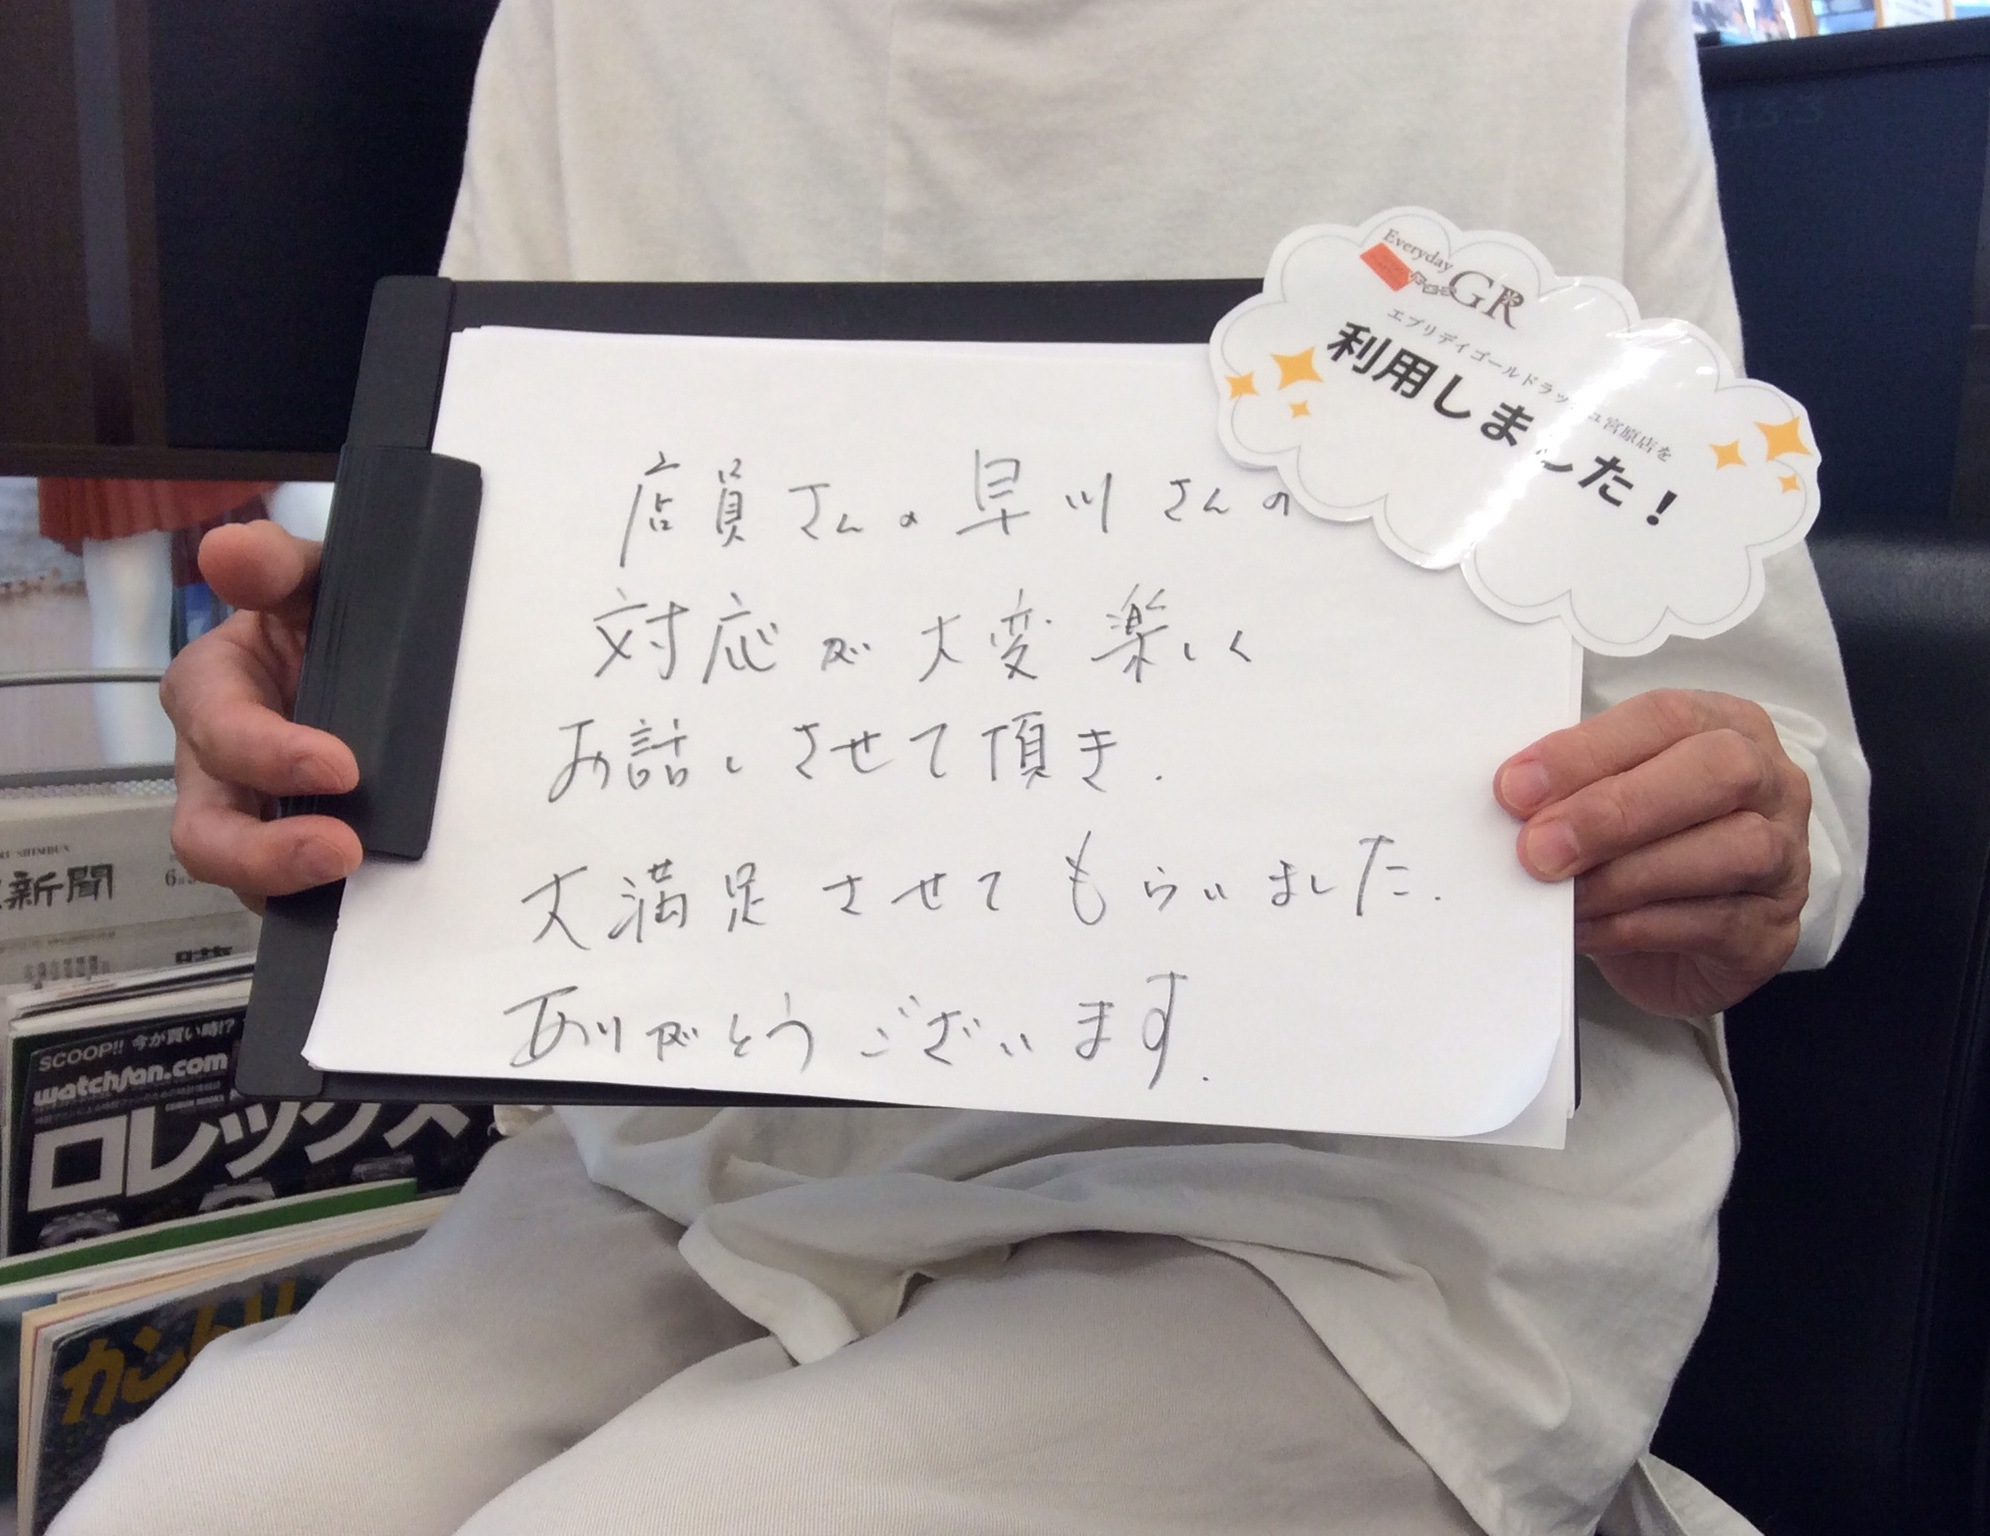 Everyday
GR
エブリデイゴールドラッシュ宮原店を
利用しました!
店員さんの早川さんの
対応が大変楽しく
お話しさせて頂き.
大満足させてもらいました.
ありがとうございます.
新聞
SCOOP!! 今が買い時!?
watchfan.com
ロレックス